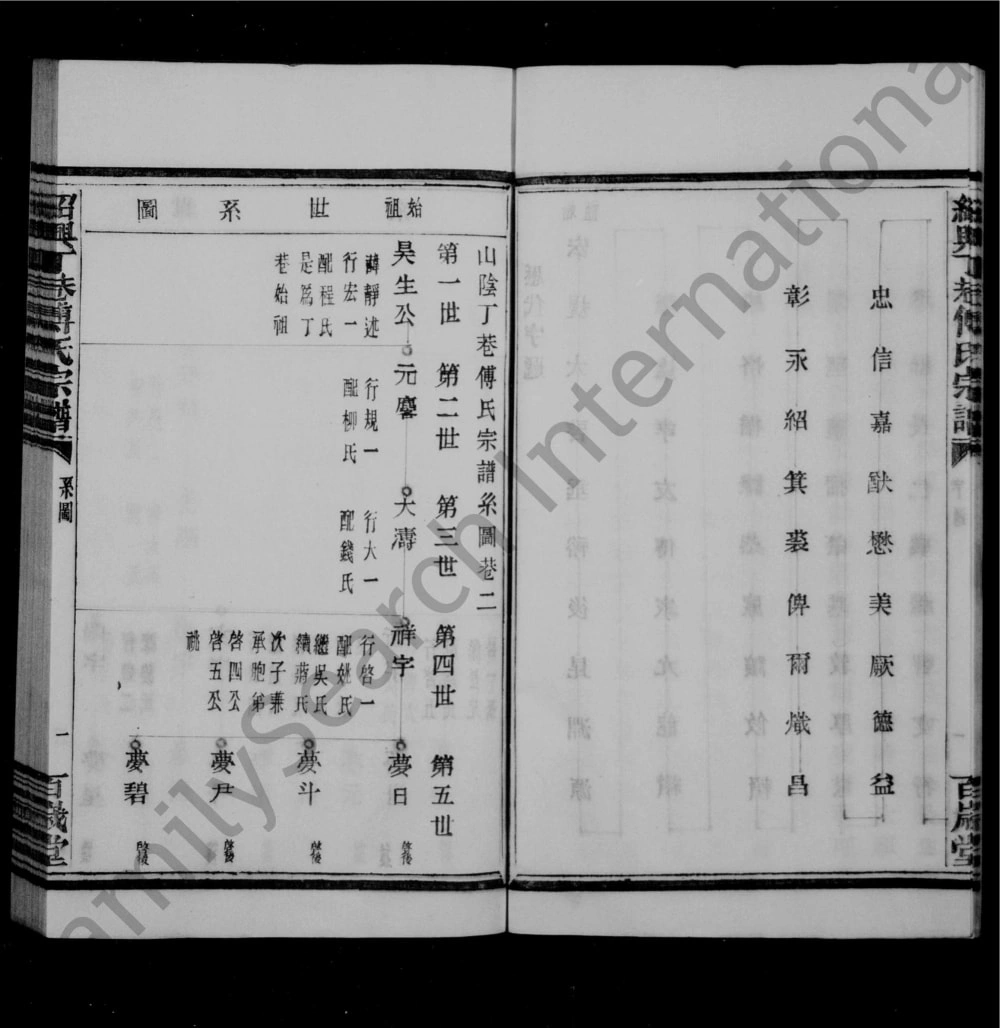 紹興丁巷傅氏宗譜
百歲堂
忠信嘉猷懋美厥德益
彰永紹箕裘俾爾熾昌
始祖
世
系
圖
山陰丁巷傅氏宗譜系圖卷二
第一世
第二世
第三世
第四世
第五世
昊生公
諱靜述
行宏一
配程氏
是為丁
巷始祖
元麐
行規一
配柳氏
大濤
行大一
配錢氏
祥字
行啓一
配姚氏
繼吳氏
續蔣氏
次子兼
承胞弟
啓四公
啓五公
祧
夢日
夢斗
夢尹
夢碧
紹興丁巷傅氏宗譜
系圖
一
百歲堂
FamilySearch International